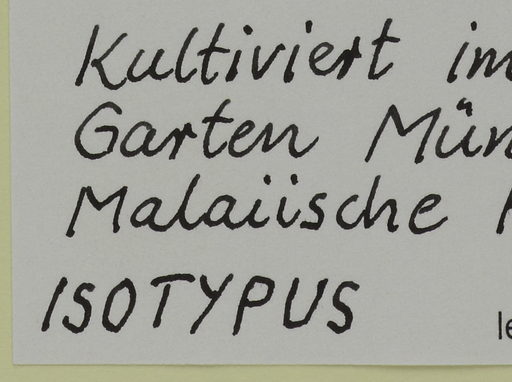 Kultiviert im
Garten Mün
Malaiische
ISOTYPUS
le